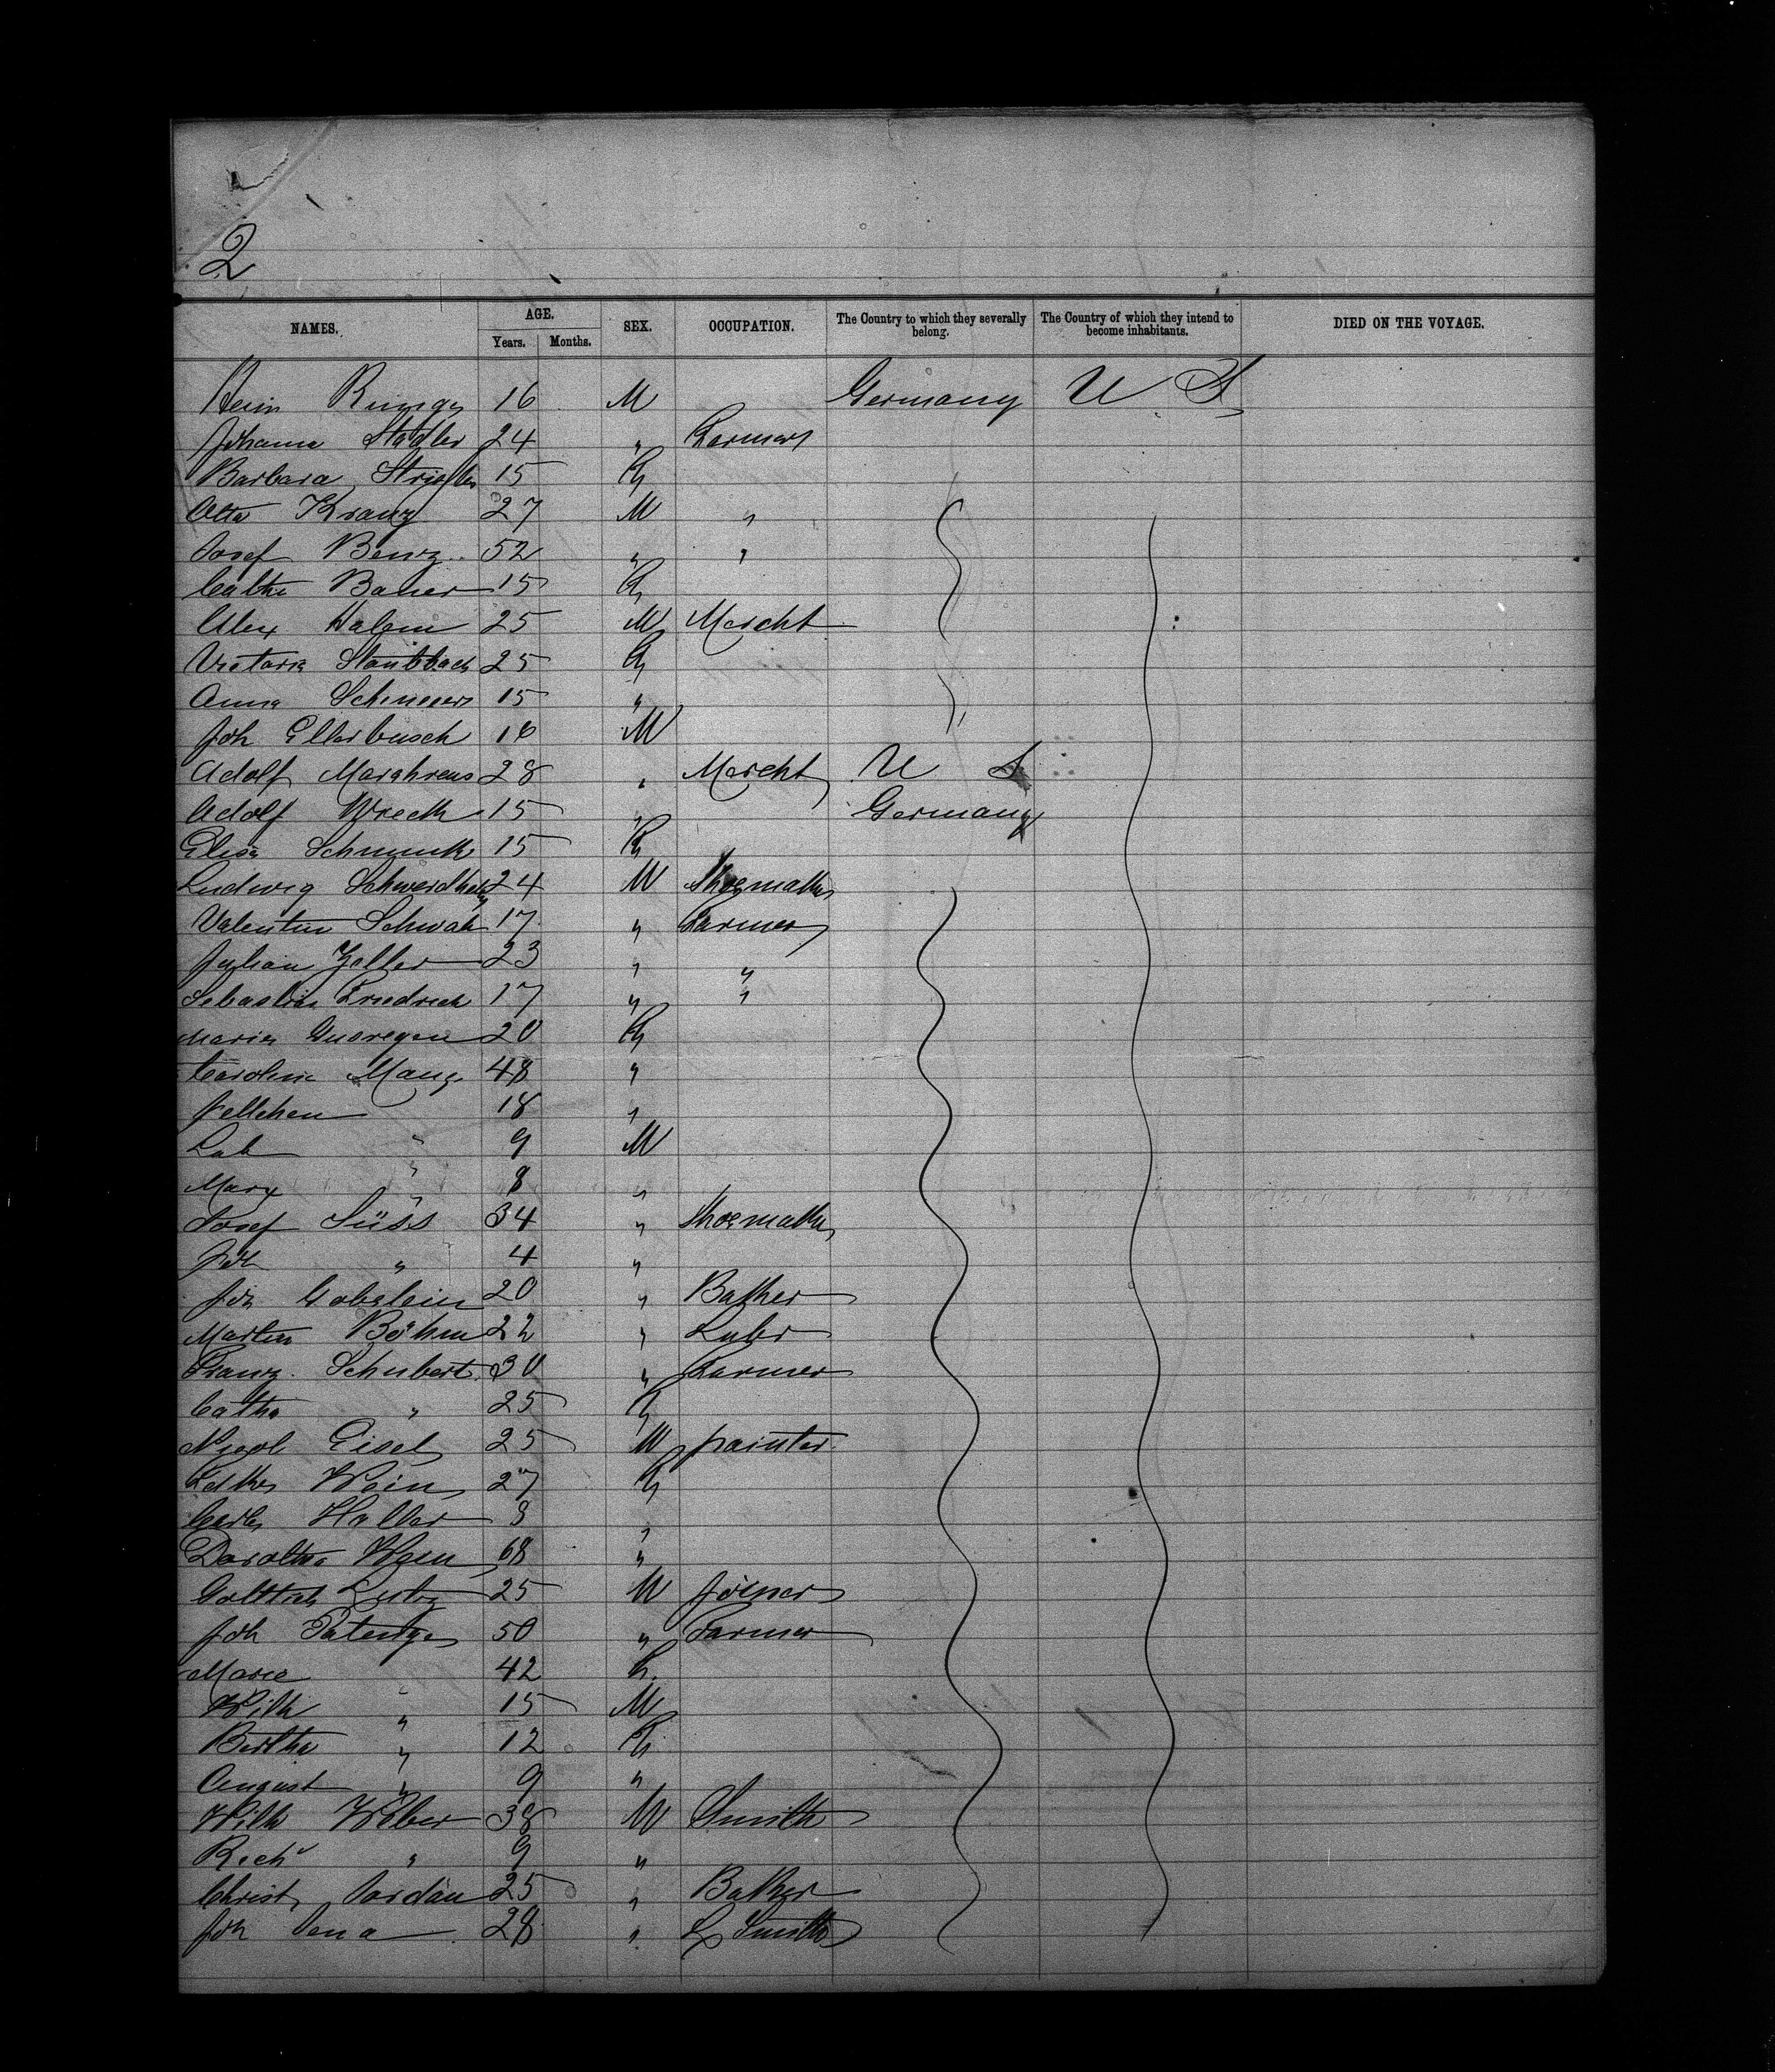 2
NAMES. AGE. SEX. OCCUPATION. The Country to which they severally belong. The Country of which they intend to become inhabitants. DIED ON THE VOYAGE.
Years. Months.
16 M Germany U S
Stadler 24 " Farmer
Barbara 15 F
Otto Kranz 27 M "
Josef Benz 52 " "
Cathe Bauer 15 F
Alex Halem 25 M Mercht
Victoria Staubbach 25 F
Anna 15 "
Joh Ellerbusch 16 M
Adolf Marahrens 28 " Mercht U S
Adolf 15 " Germany
Elisa Schmuck 15 F
Ludwig 24 M Shoemaker
Valentin Schwab 17 " Farmer
Julian Zeller 23 " "
Sebastian Friedrich 17 " "
Maria 20 F
Caroline Mang 48 "
18 "
9 M
Marx " 8 "
Josef Süss 34 " Shoemaker
Joh " 4 "
Joh 20 " Baker
Martin Böhm 22 " Labr
Franz Schubert 30 " Farmer
Catha " 25 F
Eisel 25 M painter
Wein 27 F
Haller "
Dorothea 68 "
Gottlieb 25 M Joiner
Joh Patenge 50 " Farmer
Marie " 42 F
Wilh " 15 M
Bertha " 12 F
August " 9 "
Wilh Weber 38 M Smith
Richd " 9 "
Christ Jordan 25 " Baker
Joh 28 " Smith